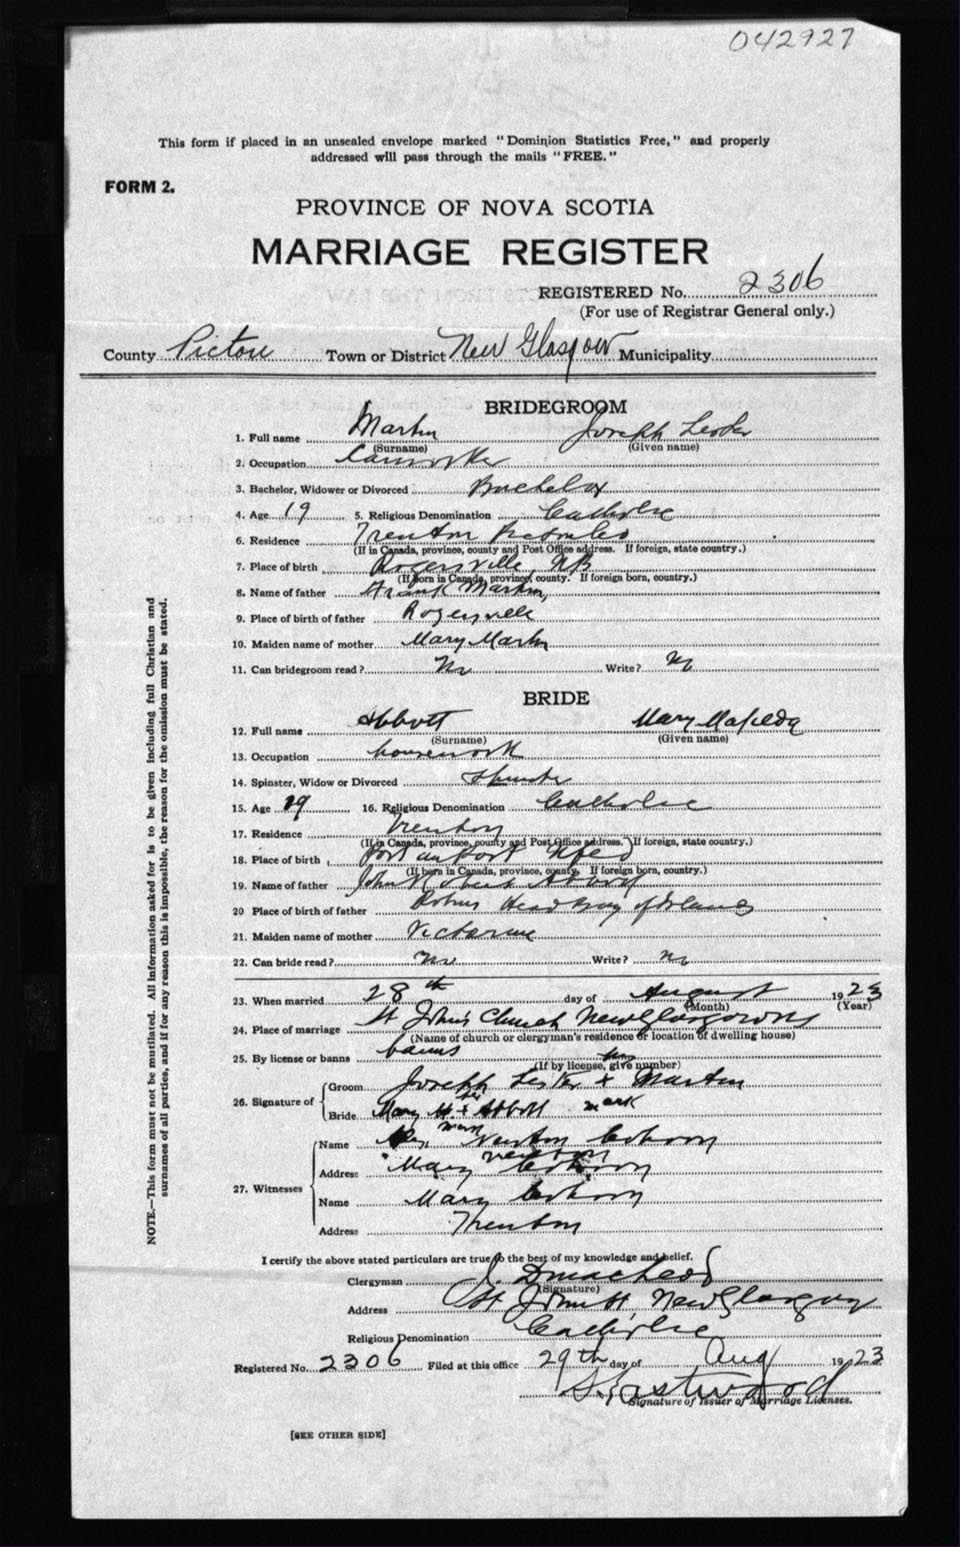 042927
This form if placed in an unsealed envelope marked "Dominion Statistics Free," and properly
addressed will pass through the mails "FREE."
FORM 2.
PROVINCE OF NOVA SCOTIA
MARRIAGE REGISTER
REGISTERED No. 2306
(For use of Registrar General only.)
County Pictou Town or District New Glasgow Municipality
BRIDEGROOM
1. Full name Martin Joseph Lester
(Surname) (Given name)
2. Occupation Carworker
3. Bachelor, Widower or Divorced Bachelor
4. Age 19 5. Religious Denomination Catholic
6. Residence Trenton Pictou Co
(If in Canada, province, county and Post Office address. If foreign, state country.)
7. Place of birth Rogersville NB
(If born in Canada, province, county. If foreign born, country.)
8. Name of father Frank Martin,
9. Place of birth of father Rogersville
10. Maiden name of mother Mary Martin
11. Can bridegroom read? No Write? No
BRIDE
12. Full name Abbott Mary
(Surname) (Given name)
13. Occupation housework
14. Spinster, Widow or Divorced Spinster
15. Age 19 16. Religious Denomination Catholic
17. Residence Trenton
(If in Canada, province, county and Post Office address. If foreign, state country.)
18. Place of birth Port au Port Nfld
(If born in Canada, province, county. If foreign born, country.)
19. Name of father John Abbott
20 Place of birth of father Robins Head Bay of Islands
21. Maiden name of mother Victorine
22. Can bride read? No Write? No
23. When married 28th day of August 1923
(Month) (Year)
24. Place of marriage St John's Church New Glasgow NS
(Name of church or clergyman's residence or location of dwelling house)
25. By license or banns banns
(If by license, give number)
his
26. Signature of Groom Joseph Lester + Martin
mark
Bride Mary M. her + Abbott
mark
27. Witnesses
Name Newton
Address Trenton
Mary
Name Mary
Address Trenton
I certify the above stated particulars are true to the best of my knowledge and belief.
Clergyman J. D MacLeod
(Signature)
Address St John St, New Glasgow
Religious Denomination Catholic
Registered No. 2306 Filed at this office 29th day of Aug 1923
S. Eastwood
Signature of Issuer of Marriage Licenses.
[SEE OTHER SIDE]
NOTE.—This form must not be mutilated. All information asked for is to be given including full Christian and
surnames of all parties, and if for any reason this is impossible, the reason for the omission must be stated.